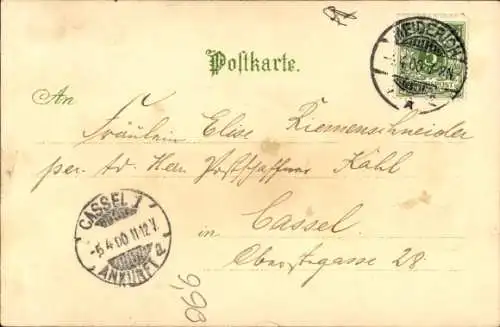 Postkarte.
MEIDERICH
4.00.
An
Fräulein Elise Riemenschneider
per. ad. Herrn Postschaffner Kahl
in Cassel.
Obergasse 28.
CASSEL 1
-5.4.00 11-12 V.
ANKUNFT